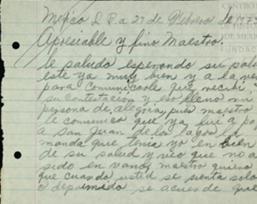 Mexico D.F. a 27 de Febrero de 1973
Apresiable y fino Maestro.
le saludo esperando su salud
este ya muy bien y a la vez
para comunicarle que recibi
su contestacion y eso lleno mi
persona de alegria, pues maestro
le comunico que ya fui a pagar
a San Juan de los Lagos la
manda que tenia yo en bien
de su salud y creo que no a
sido en vano, maestro quiero
que cuando usted se sienta solo
o deprimido se acuerde que